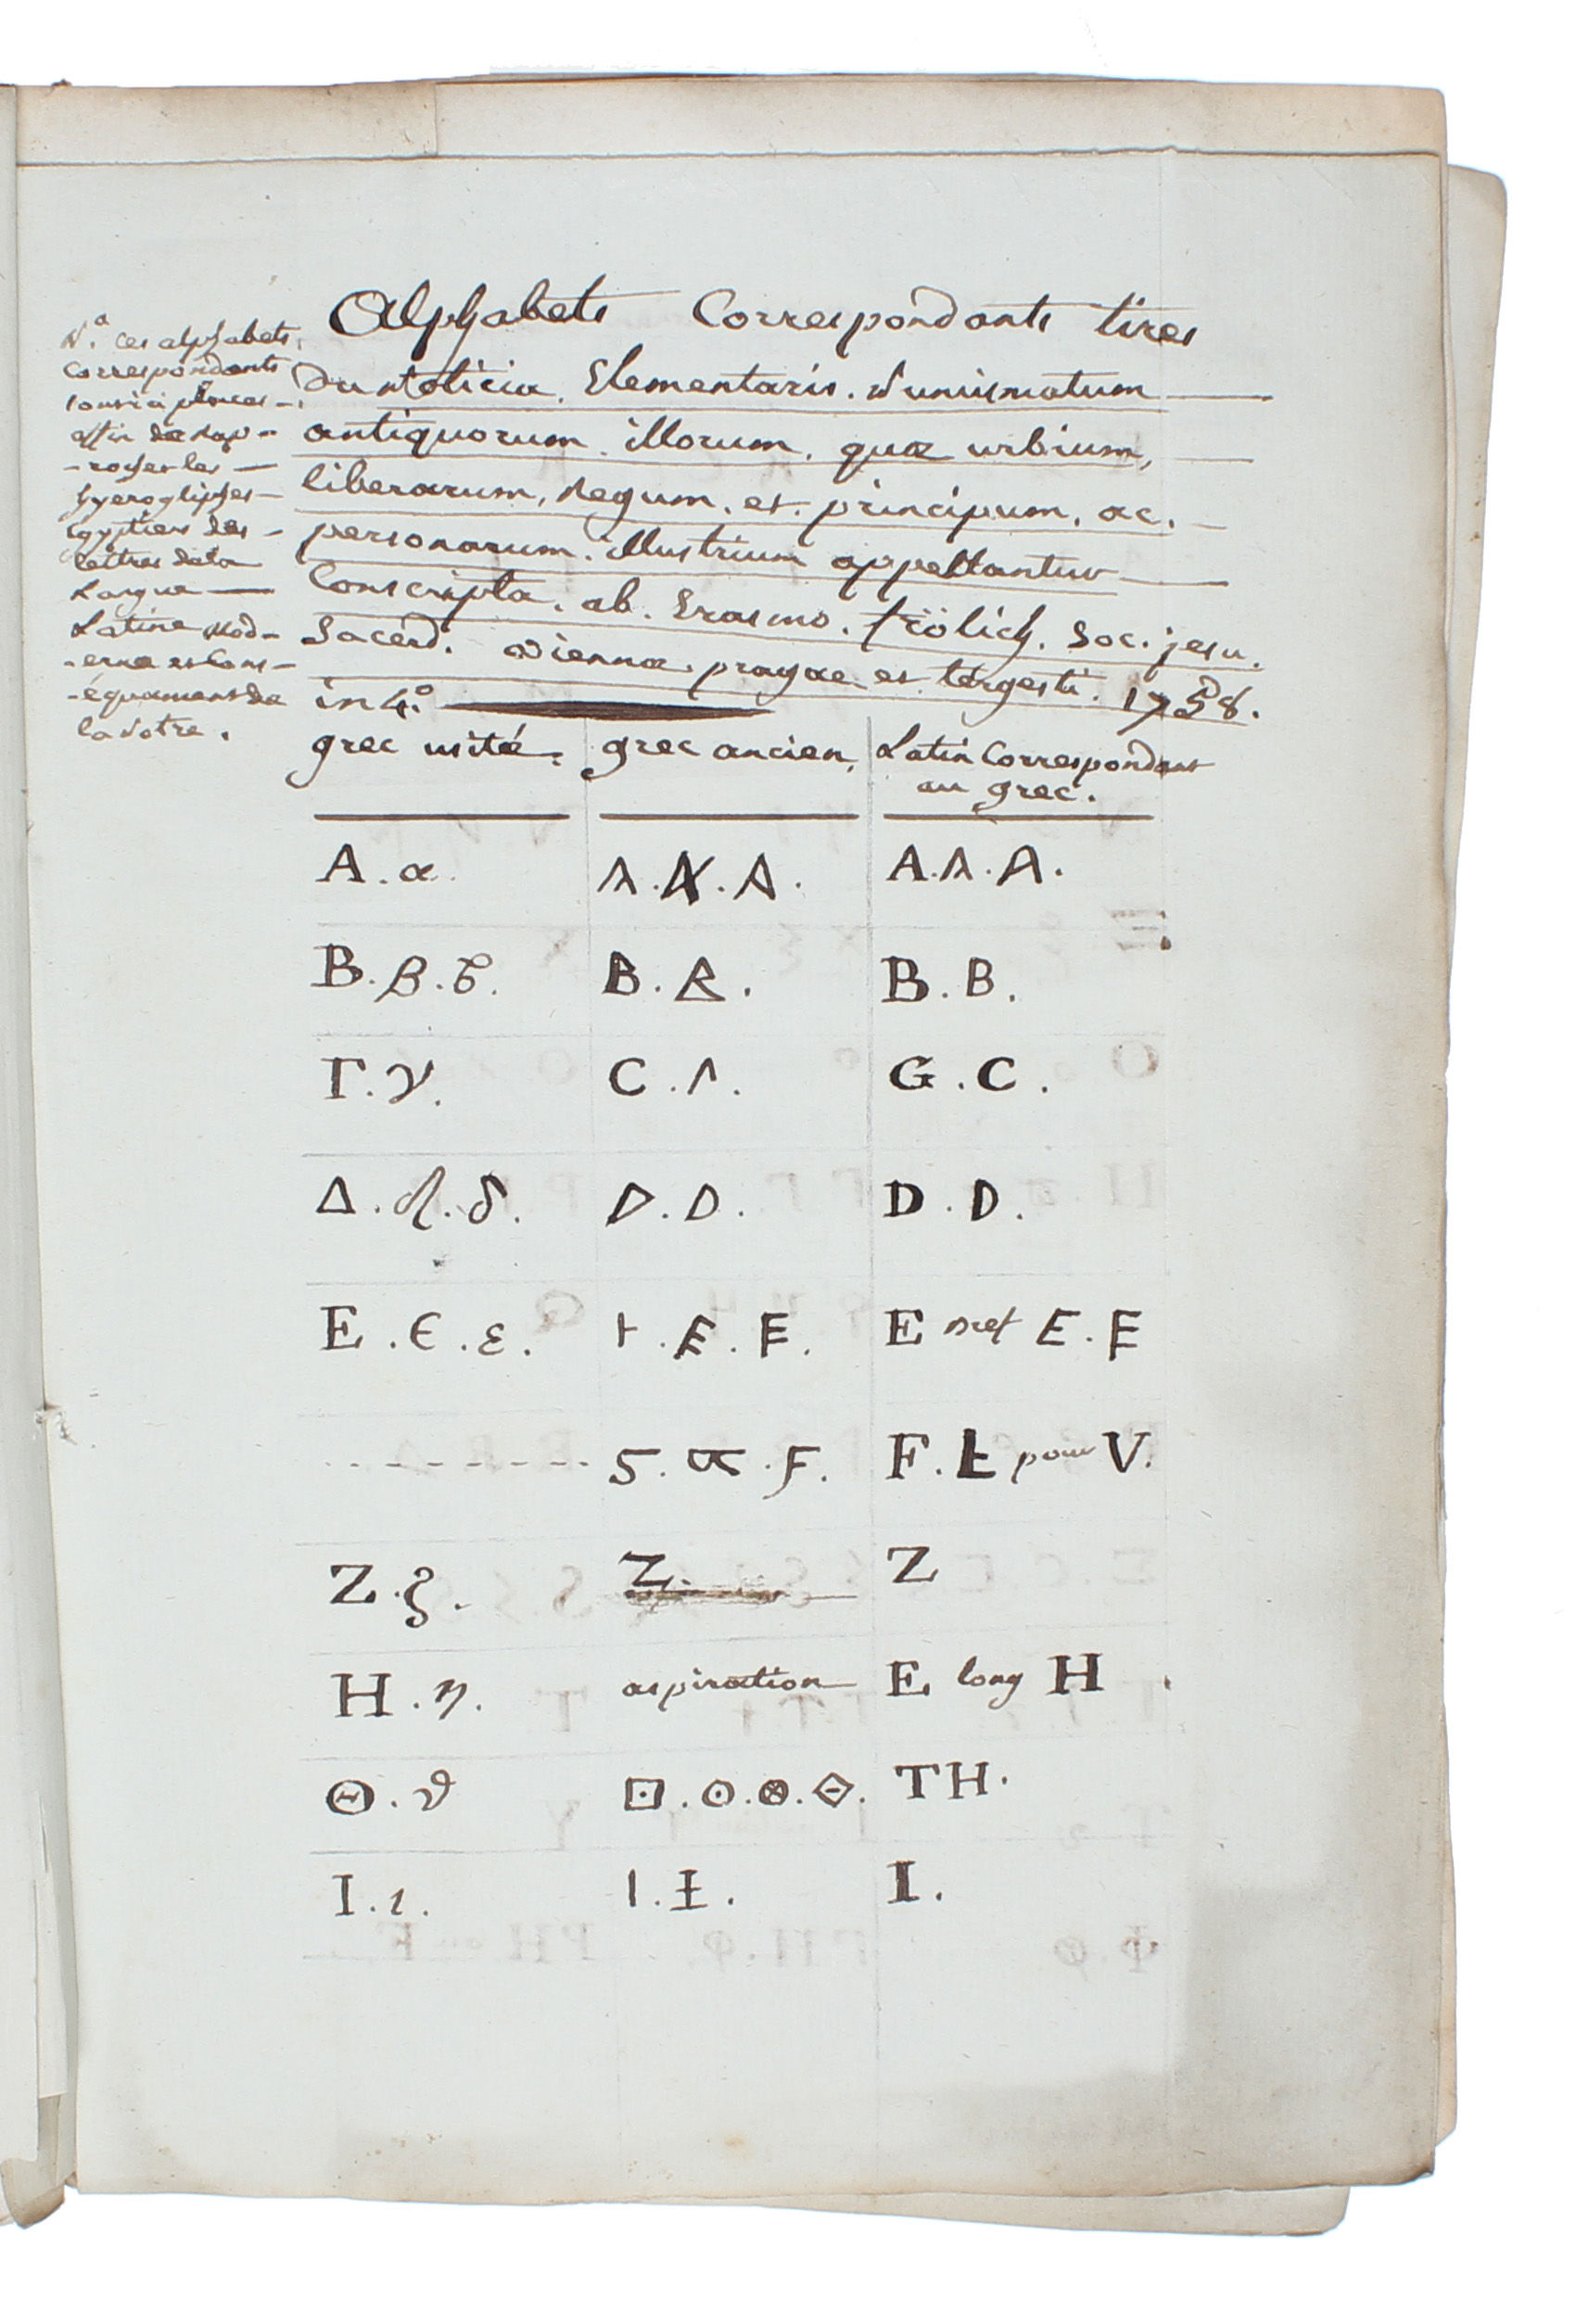 Alphabets Correspondants tires
Du notitia. Elementaris. Numismatum
antiquorum. illorum. quæ urbium,
liberarum, Regum. et. principum, ac.
personarum. illustrium appellantur
Conscripta. ab. Erasmo. frölich. Soc. jesu.
Sacerd. viennæ. pragae et tergesti. 1758.
in 4.°
N.a ces alphabets,
Correspondants
sont ici placés
affin de Rap-
-rocher les
hyerogliphes
Egyptiens des
lettres de la
Langue
Latine Mod-
-erne et Cons-
-équament de
la notre.
grec usité. grec ancien. Latin Correspondant
au grec.
A. α. Λ. A. A. A. Λ. A.
B. β. ϐ. B. R. B. B.
Γ. γ. C. Λ. G. C.
Δ. δ. D. D. D. D.
E. Є. ε. Ͱ. E. E. E E. E
5. F. F. Ł pour V.
Z. ζ. Z. Z
H. η. aspiration E long H
Θ. ϑ ⊡. ⊙. ⊗. TH.
I. ι. I. I.